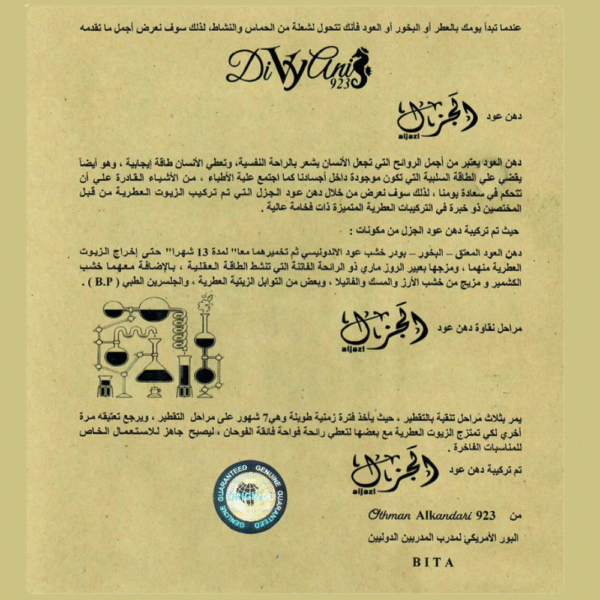 عندما تبدأ يومك بالعطر أو البخور أو العود فأنك تتحول لشعلة من الحماس والنشاط، لذلك سوف نعرض أجمل ما تقدمه
DiVyAni 923
دهن عود الجزل
aljazl
دهن العود يعتبر من أجمل الروائح التي تجعل الأنسان يشعر بالراحة النفسية، وتعطي الأنسان طاقة إيجابية ، وهو أيضاً
يقضي علي الطاقة السلبية التي تكون موجودة داخل أجسادنا كما اجتمع علية الأطباء ، من الأشياء القادرة علي أن
تتحكم في سعادة يومنا ، لذلك سوف نعرض من خلال دهن عود الجزل التي تم تركيب الزيوت العطرية من قبل
المختصين ذو خبرة في التركيبات العطرية المتميزة ذات فخامة عالية .
حيث تم تركيبة دهن عود الجزل من مكونات :
دهن العود المعتق – البخور – بودر خشب عود الاندونيسي ثم تخميرهما معا" لمدة 13 شهرا" حتى إخراج الزيوت
العطرية منهما ، ومزجها بعبير الروز ماري ذو الرائحة الفاتنة التي تنشط الطاقة العقلية ، بالإضافة معهما خشب
الكشمير و مزيج من خشب الأرز والمسك والفانيلا ، وبعض من التوابل الزيتية العطرية ، والجلسرين الطبي ( B.P ) .
مراحل نقاوة دهن عود الجزل
aljazl
يمر بثلاث مراحل تنقية بالتقطير ، حيث يأخذ فترة زمنية طويلة وهي7 شهور على مراحل التقطير ، ويرجع تعتيقه مرة
أخري لكي تمتزج الزيوت العطرية مع بعضها لتعطي رائحة فواحة فائقة الفوحان ، ليصبح جاهز للاستعمال الخاص
للمناسبات الفاخرة .
تم تركيبة دهن عود الجزل
aljazl
من Othman Alkandari 923
البور الأمريكي لمدرب المدربين الدوليين
BITA
GENUINE GUARANTEED GENUINE GUARANTEED